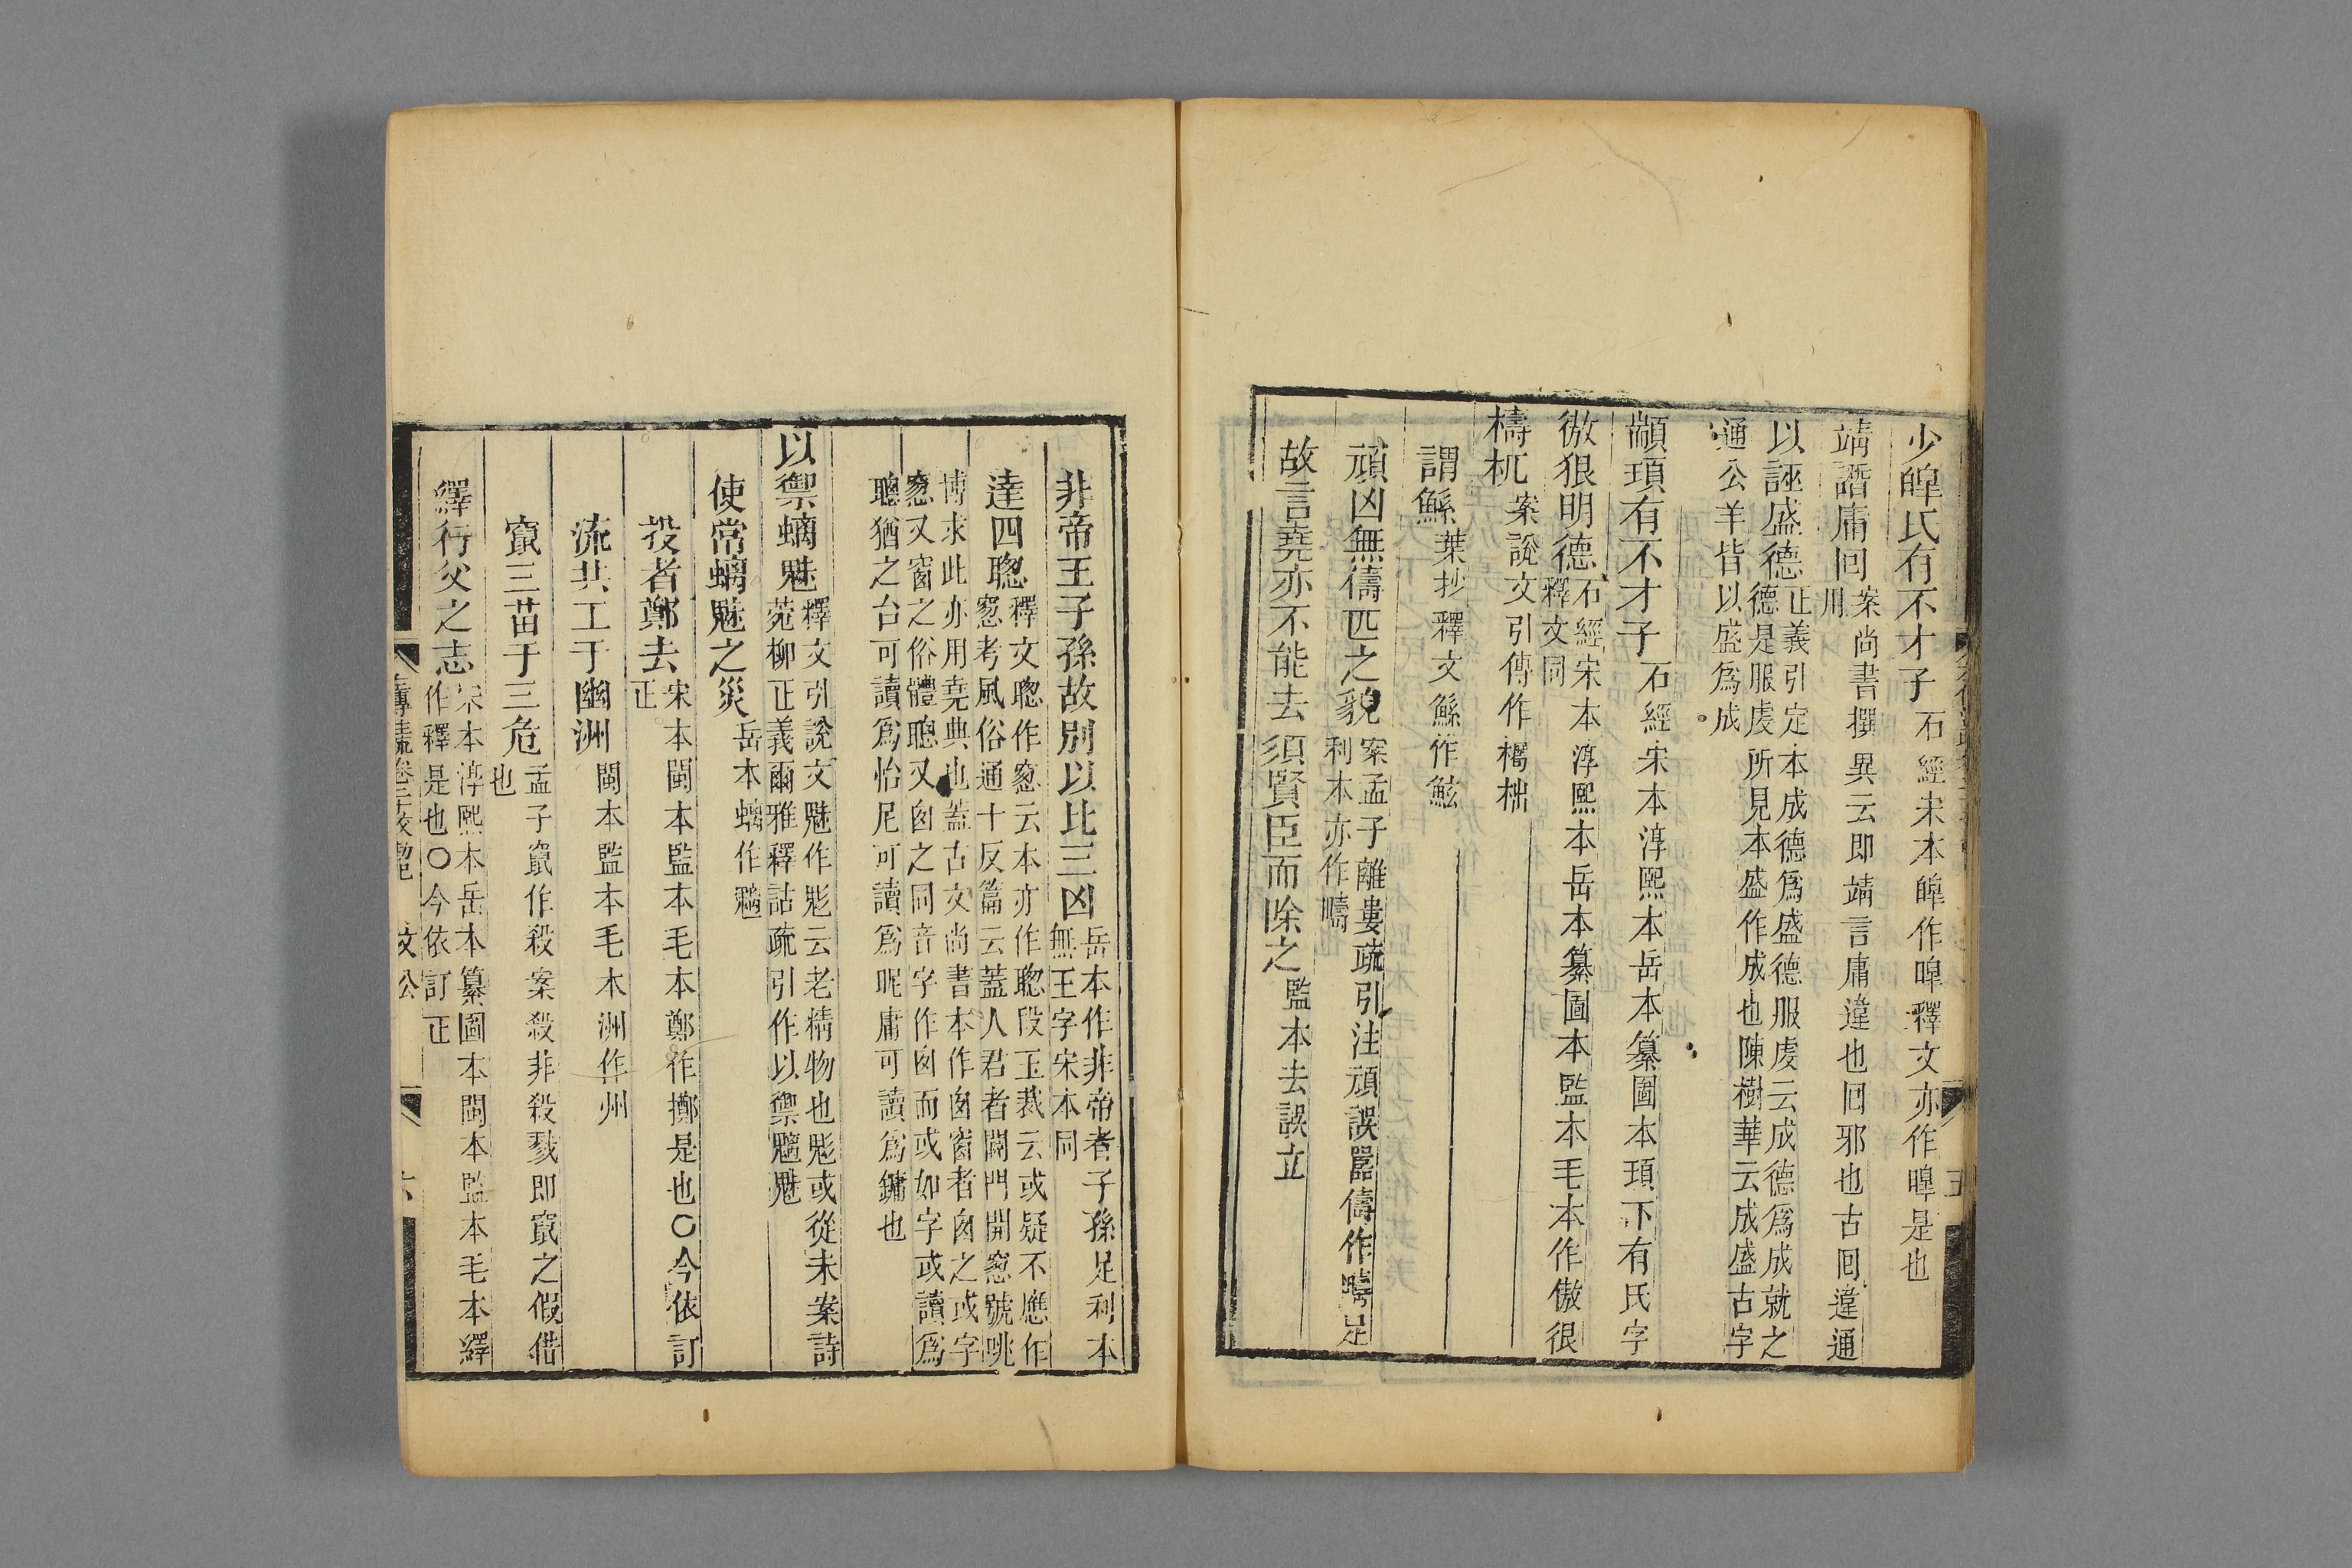 少皥氏有不才子石經宋本皥作皡釋文亦作暤是也
靖譖庸回案尚書撰異云即靖言庸違也回邪也古回違通
用
以誣盛德正義引定本成德爲盛德服虔云成德爲成就之
德是服虔所見本盛作成也陳樹華云成盛古字
通公羊皆以盛爲成
顓頊有不才子石經宋本淳熙本岳本纂圖本頊下有氏字
傲狠明德石經宋本淳熙本岳本纂圖本監本毛本作傲很
釋文同
檮杌案說文引傳作檮柮
謂鯀葉抄釋文鯀作鮌
頑凶無儔匹之貌案孟子離婁疏引注頑誤嚚儔作疇足
利本亦作疇
故言堯亦不能去須賢臣而除之監本去誤立
五
非帝王子孫故別以比三凶岳本作非帝者子孫足利本
無王字宋本同
達四聰釋文聰作窻云本亦作聰段玉裁云或疑不應作
窻考風俗通十反篇云蓋人君者闢門開窻號咷
博求此亦用堯典也蓋古文尚書本作囪窗者囪之或字
窻又窗之俗體聰又囪之同音字作囪而或如字或讀爲
聰猶之台可讀爲怡尼可讀爲昵庸可讀爲鏞也
以禦螭魅釋文引說文魅作鬽云老精物也鬽或從未案詩
菀柳正義爾雅釋詁疏引作以禦魑魅
使當螭魅之災岳本螭作魑
投者鄭去宋本閩本監本毛本鄭作擲是也○今依訂
正
流共工于幽洲閩本監本毛本洲作州
竄三苗于三危孟子竄作殺案殺非殺戮即竄之假借
也
繹行父之志宋本淳熙本岳本纂圖本閩本監本毛本繹
作釋是也○今依訂正
文公
六